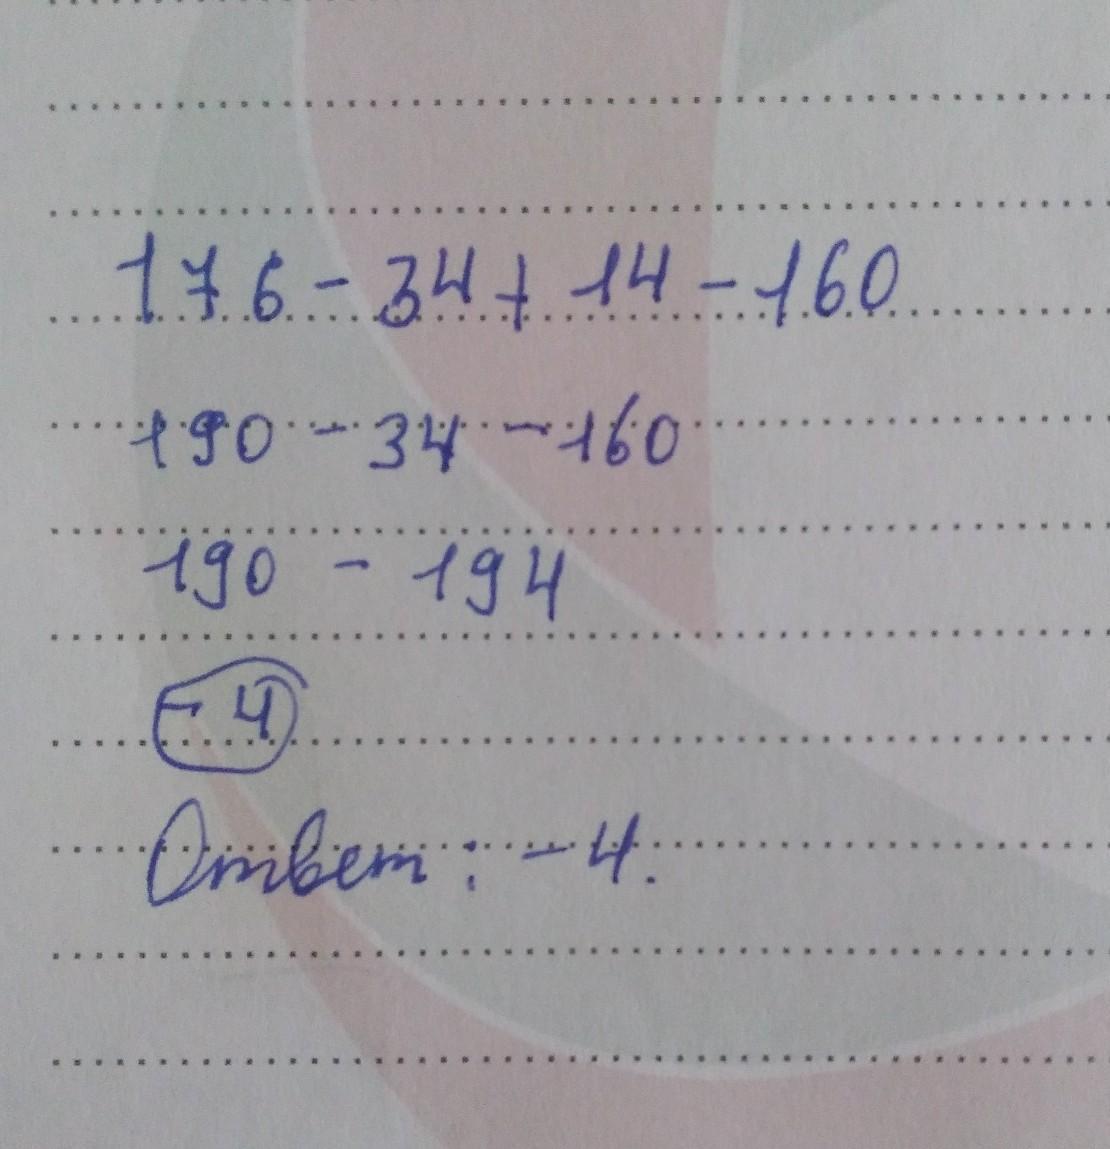 176 - 34 + 14 - 160
190 - 34 - 160
190 - 194
- 4
Ответ: - 4.